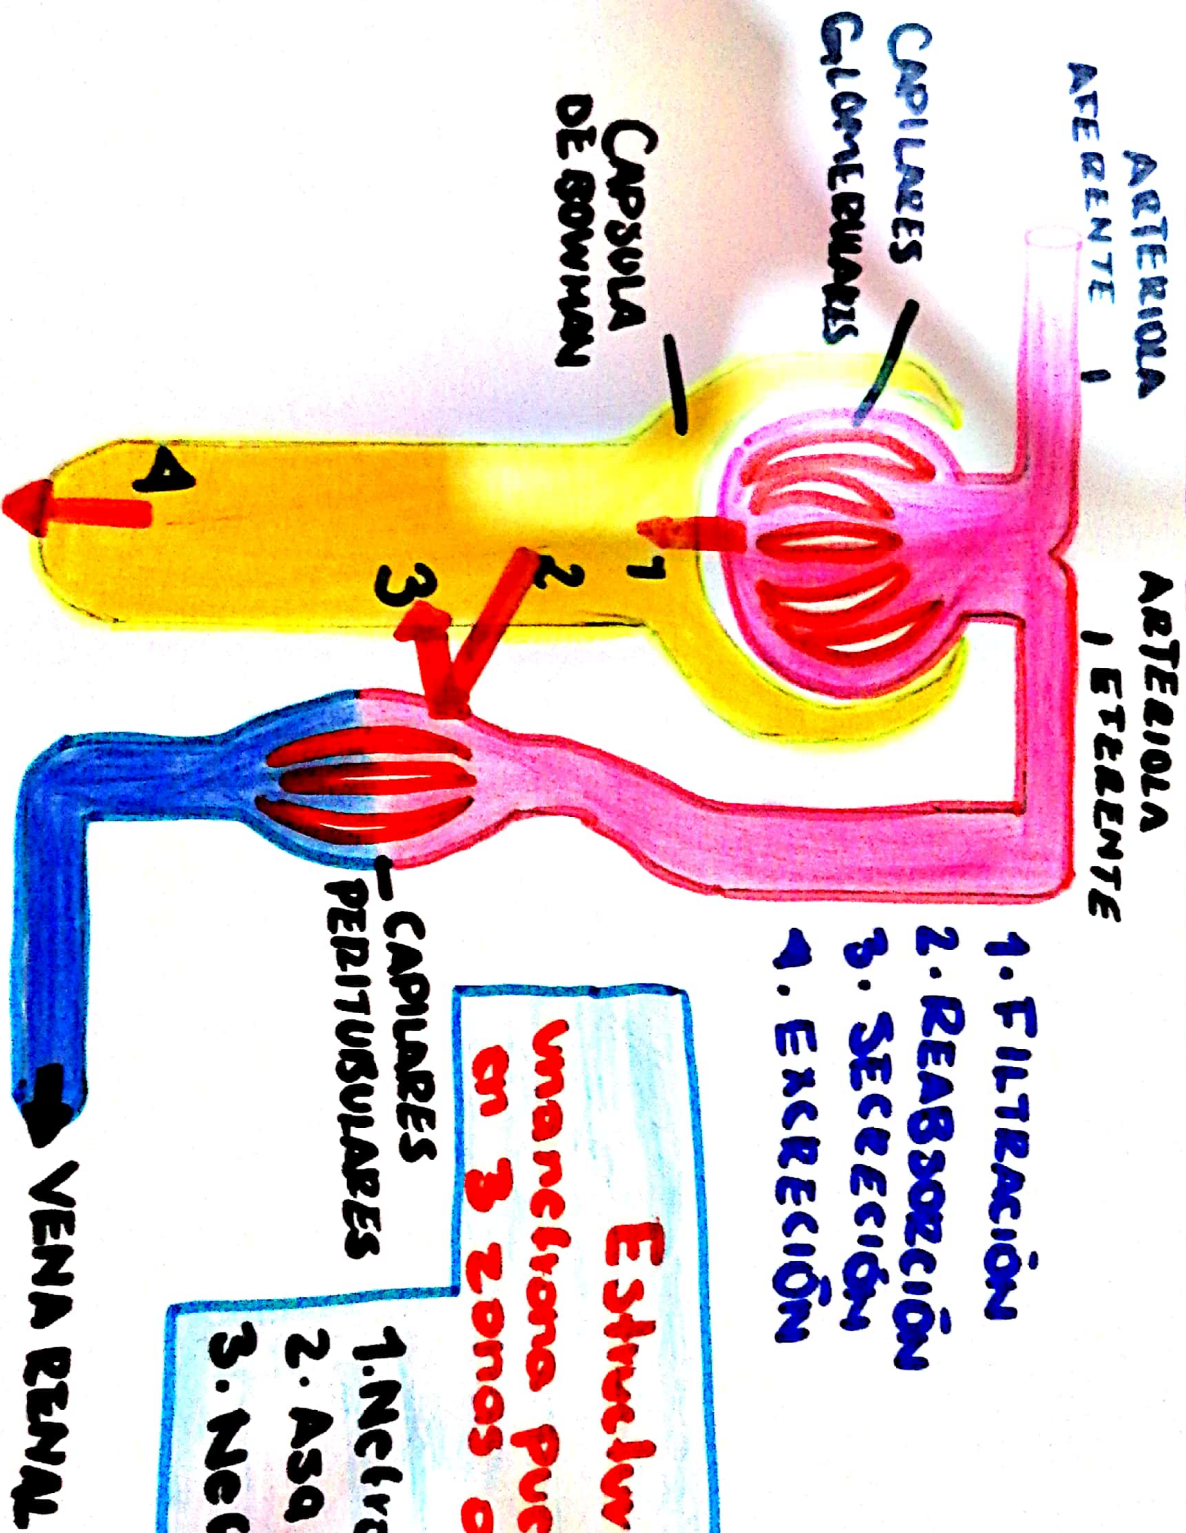 ARTERIOLA
AFERENTE
CAPILARES
GLOMERULARES
CAPSULA
DE BOWMAN
ARTERIOLA
EFERENTE
1
2
3
4
1. FILTRACIÓN
2. REABSORCIÓN
3. SECRECIÓN
4. EXCRECIÓN
CAPILARES
PERITUBULARES
VENA RENAL
una nefrona
en 3 zonas
1.
2. Asa
3.